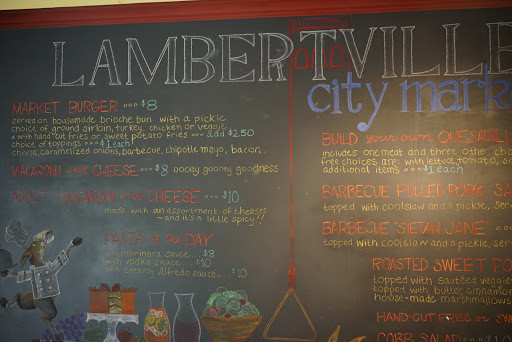 LAMBERTVILLE
city mark
MARKET BURGER ooo $8
served on housemade brioche bun with a pickle
choice of ground sirloin, turkey, chicken or veggie
with hand cut fries or sweet potato fries ooo add $2.50
choice of toppings ooo $1 each!
cheese, caramelized onions, barbecue, chipotle mayo, bacon.
MACARONI CHEESE ooo $8 ooey gooey goodness
ADULT MACARONI CHEESE ooo $10
made with an assortment of cheeses
and it's a little spicy!!
PASTA of the DAY
marinara sauce ... $8
with vodka sauce ... $10
with creamy Alfredo sauce ... $10
BUILD your own QUESADIL
includes one meat and three other cho
free choices are: with lettuce, tomato, so
additional items ooo $1 each
BARBECUE PULLED PORK SA
topped with coolslaw and a pickle, serv
BARBECUE "SIETAN JANE" ooo
topped with coolslaw and a pickle, serv
ROASTED SWEET PO
topped with sauteed veggie
topped with butter, cinnamon
house-made marshmallows
HAND-CUT FRIES or SWE
COBB SALAD